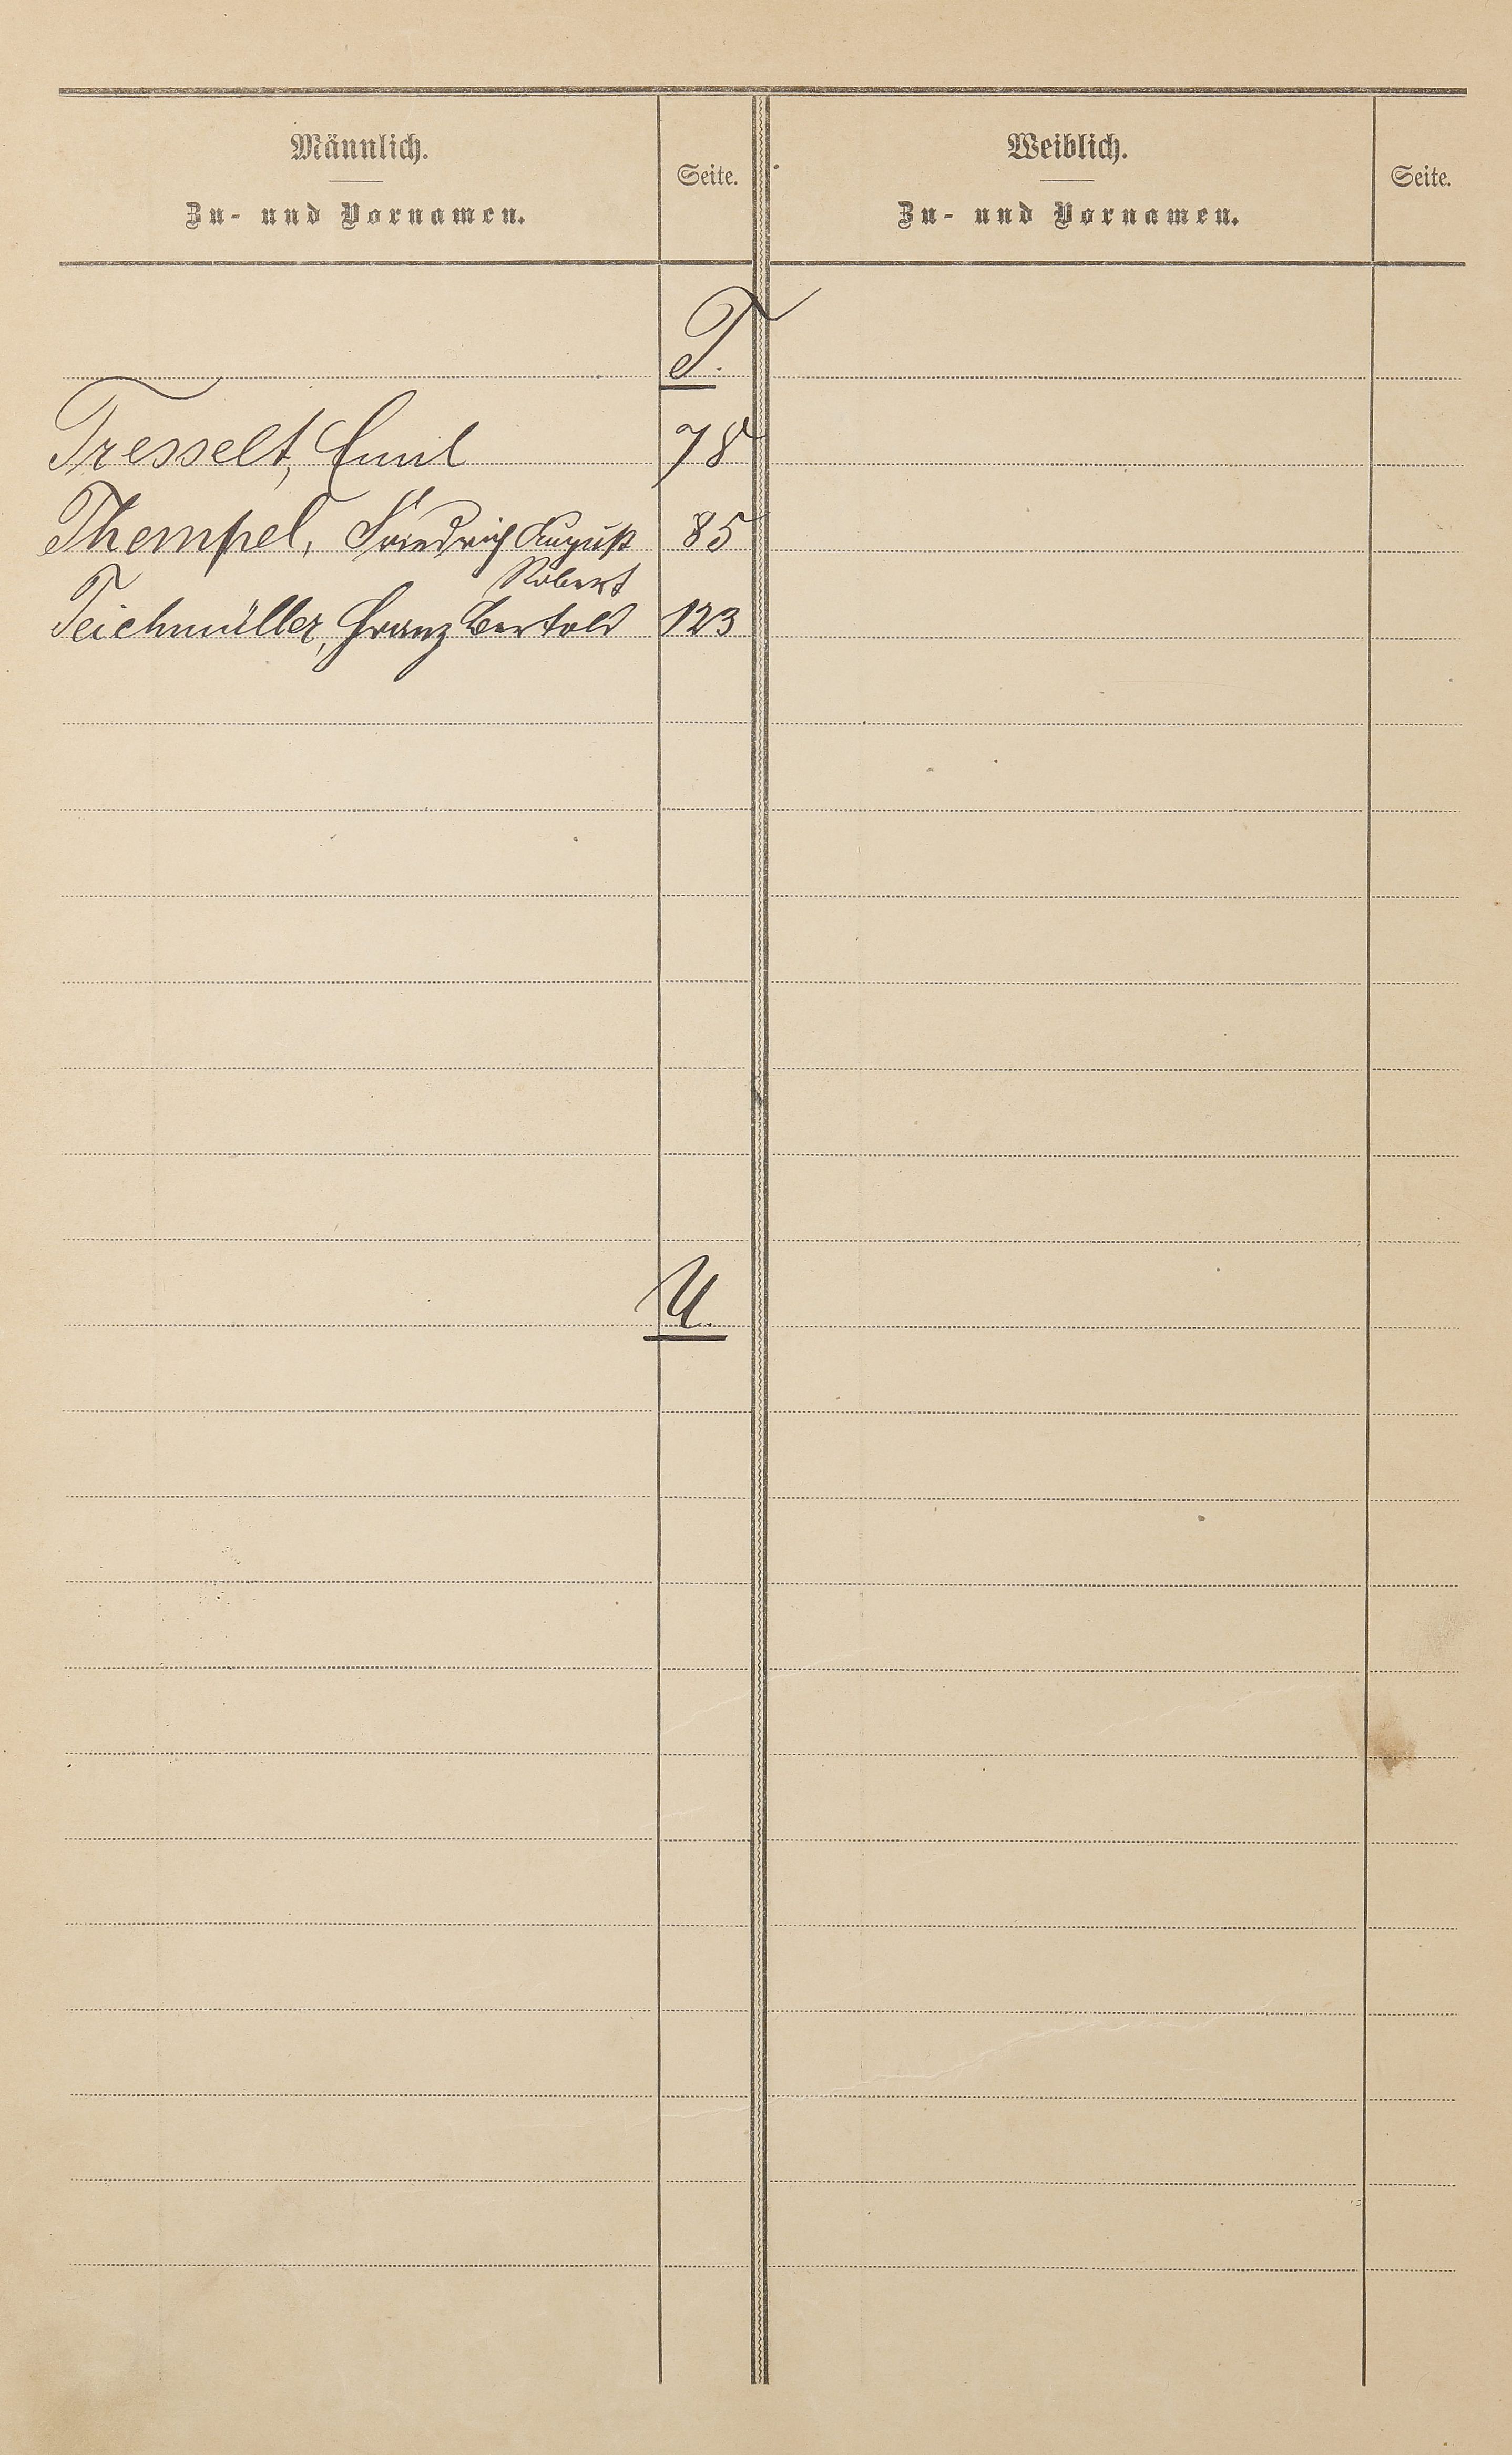 Männlich.
Zu- und Vornamen.
Seite.
Weiblich.
Zu- und Vornamen.
Seite.
T.
Tresselt, Emil 78
Thempel, Friedrich August 85
Robert
Teichmüller, Franz Bertold 123
U.